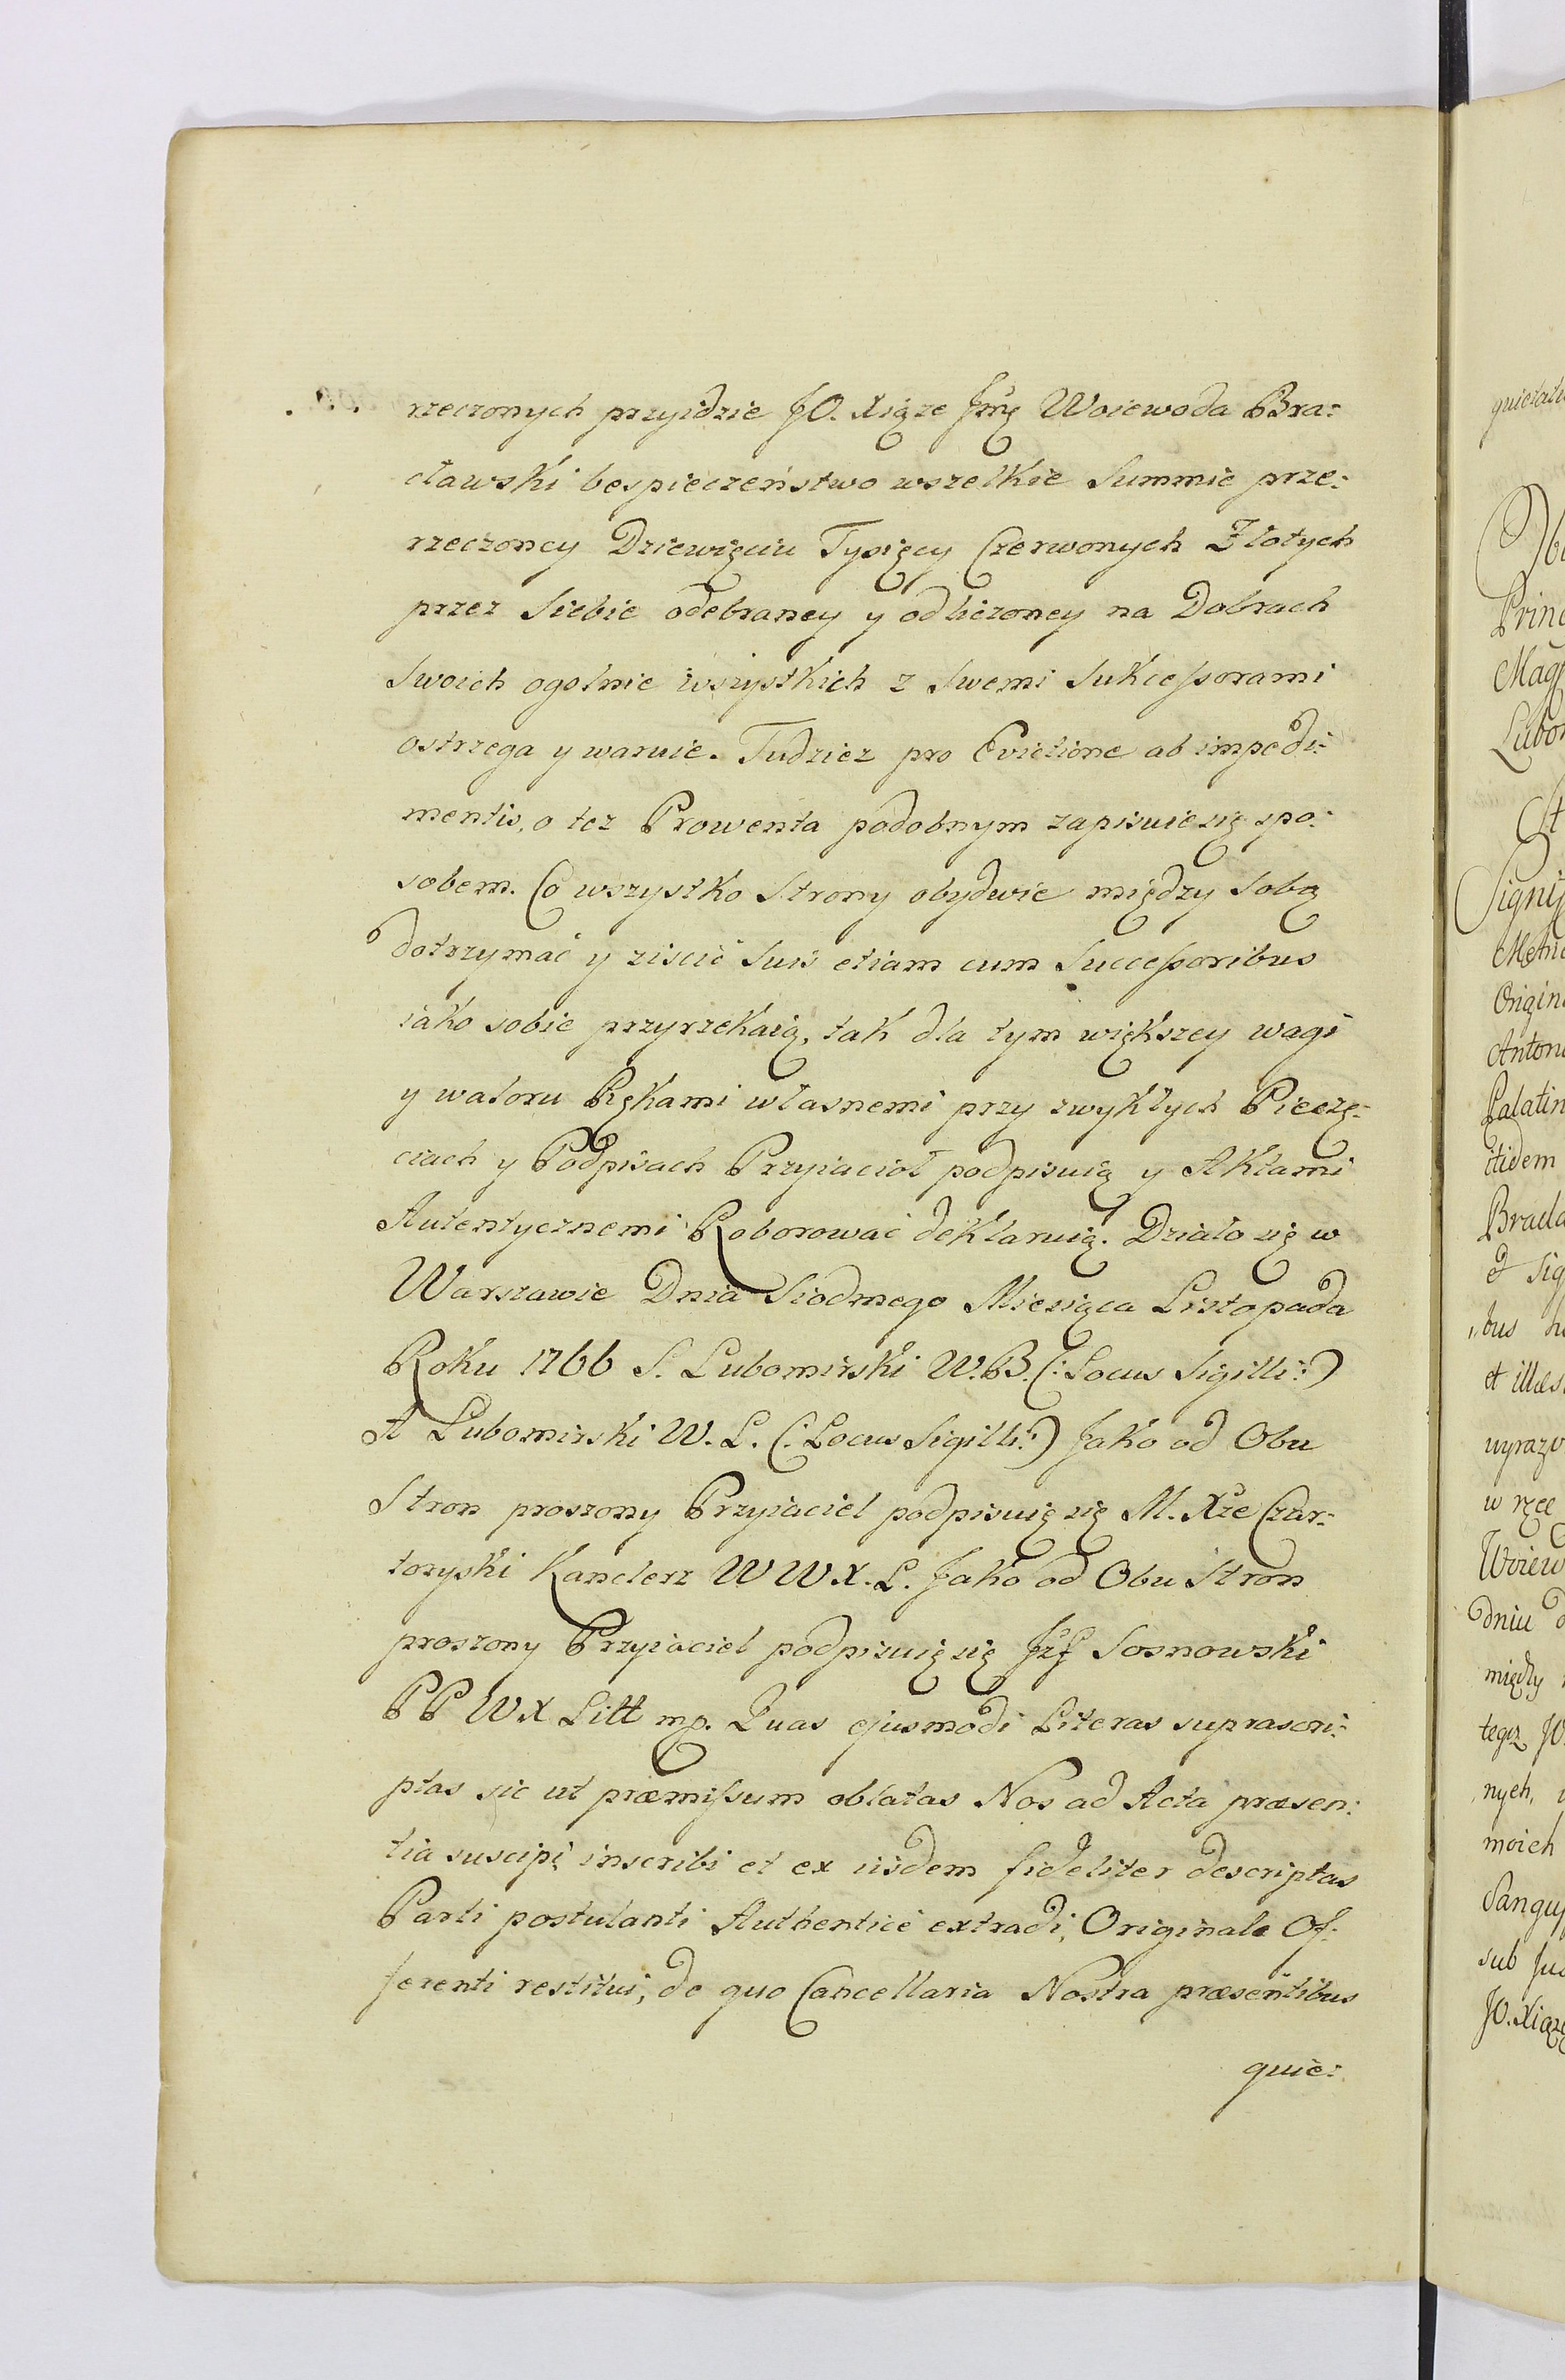 rzeczonych przyidzie JO. Xiąze Jmę Woiewoda Bra:
cławski bespieczeństwo wszelkie Summie prze:
rzeczoney Dziewięciu Tysięcy Czerwonych Złotych
przez Siebie odebraney y odliczoney na Dobrach
Swoich ogolnie wszystkich z Swemi Sukcessorami
ostrzega y waruie. Tudziez pro Evictione ab impedi:
mentis, o tez Prowenta podobnym zapisuie się spo:
sobem. Co wszystko Strony obydwie między Sobą
dotrzymać y ziscić Suis etiam cum Successoribus
iako sobie przyrzekaią, tak dla tym większey wagi
y waloru Rękami własnemi przy zwykłych Pieczę:
ciach y Podpisach Przyiacioł podpisuią y Aktami
Autentycznemi Roborować deklaruią. Działo się w
Warszawie Dnia Siodmego Miesiąca Listopada
Roku 1766 S. Lubomirski W.B. (: Locus Sigilli :)
A Lubomirski W. L. (: Locus Sigilli :) Jako od Obu
Stron proszony Przyiaciel podpisuię się M. Xże Czar:
toryski Kanclerz W W X. L. Jako od Obu Stron
proszony Przyiaciel podpisuię się Jzf Sosnowski
P P W X Litt mp. Quas ejusmodi Literas suprascri:
ptas sic ut præmissum oblatas Nos ad Acta præsen:
tia suscipi, inscribi et ex iisdem fideliter descriptas
Parti postulanti Authenticè extradi, Originale Of:
ferenti restitui, de quo Cancellaria Nostra præsentibus
quie:
quietat
Prin
Mag
Lubo
Signi
Origin
Anton
Palatin
itidem
Bracla
et Sig
bus h
et illæs
wyrazo
w rzec
Woiew
dniu
między
tegoz JO
nych,
moich
Sangu
sub
JO. Xiąż